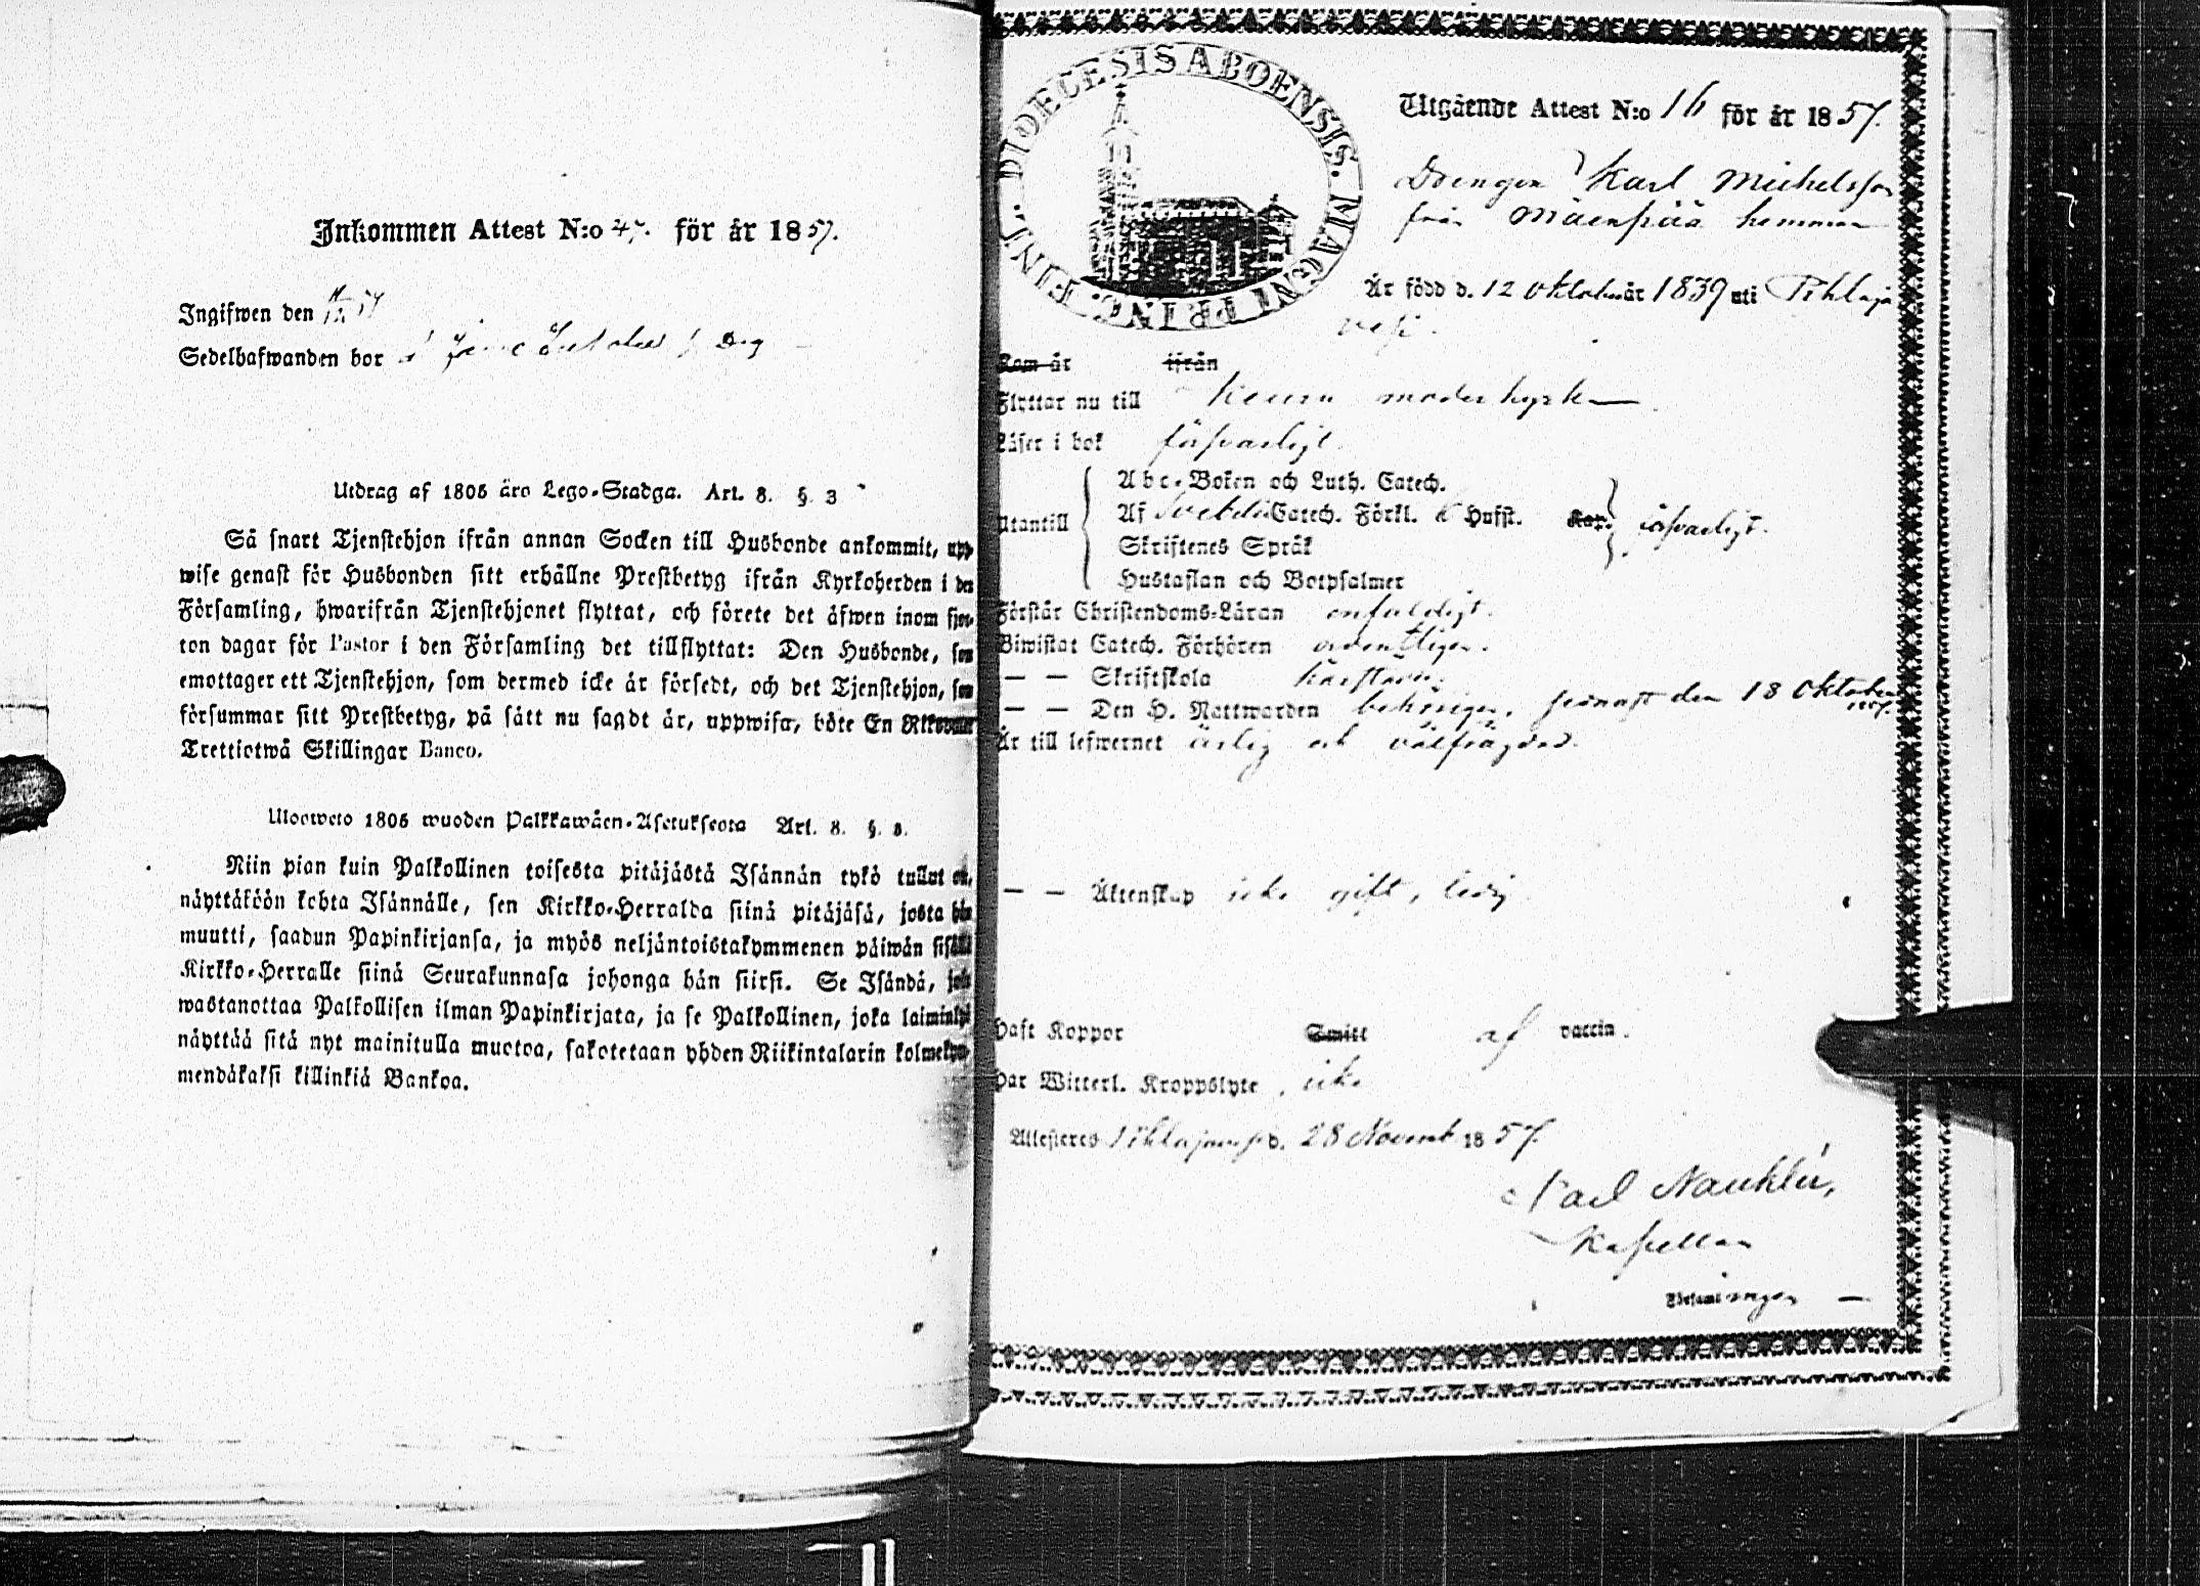 Inkommen Attest N:o 47. för år 1857.
Ingifwen den
Sedelhafwanden bor
Utdrag af 1805 års Lego-Stadga. Art. 8. §. 3
Så snart Tjenstehjon ifrån annan Socken till Husbonde ankommit, upp-
wise genast för Husbonden sitt erhållne Prestbetyg ifrån Kyrkoherden i den
Församling, hwarifrån Tjenstehjonet flyttat, och förete det äfwen inom fjor-
ton dagar för Pastor i den Församling det tillflyttat: Den Husbonde, som
emottager ett Tjenstehjon, som dermed icke är försedt, och det Tjenstehjon, som
försummar sitt Prestbetyg, på sätt nu sagdt är, uppwisa, böte En Riks
Trettiotwå Skillingar Banco.
Ulooweto 1805 wuoden Palkkawäen-Asetuksesta Art. 8. §. 3.
Niin pian kuin Palkollinen toisesta pitäjästä Isännän tykö tullut on,
näyttäköön kohta Isännälle, sen Kirkko-Herralda siinä pitäjäsä, josta hän
muutti, saadun Papinkirjansa, ja myös neljäntoistakymmenen päiwän sisällä
Kirkko-Herralle siinä Seurakunnasa johonga hän siirsi. Se Isändä, joka
wastanottaa Palkollisen ilman Papinkirjata, ja se Palkollinen, joka laiminlyö
näyttää sitä nyt mainitulla muotoa, sakotetaan yhden Riikintalarin kolmekym-
mendäkaksi killinkiä Bankoa.
DIOECESIS ABOENSIS. MAGNI PRINC. FINL.
Utgående Attest N:o 16 för år 1857.
Drengen Karl Michelsson
från Mäenpää hemman
Är född d. 12 Oktober år 1839 uti Pihlaja
vesi.
Kom år ifrån
Flyttar nu till Keuru moderkyrka
Läser i bok försvarligt.
Abc-Boken och Luth. Catech.
Utantill Af Svebelii Catech. Förkl. Husft. Kap. försvarligt.
Skriftenes Språk
Hustaflan och Botpsalmer
Förstår Christendoms-Läran enfaldigt.
Biwistat Catech. Förhören ordentligen.
— — Skriftskola
— — Den H. Nattwarden begingen, sednast den 18 Oktober
Är till lefwernet ärlig och välfrägdad.
— — Äktenskap icke gift, ledig.
Haft Koppor Smitt af vaccin.
Har Witterl. Kroppslyte, icke
Attesteras Pihlajavesi d. 28 Novemb 1857.
Karl Nauklér,
Kapellan
Församlingen